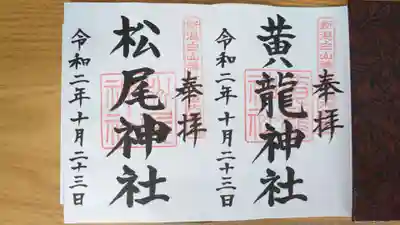 奉拝
黄龍神社
令和二年十月二十三日
奉拝
松尾神社
令和二年十月二十三日